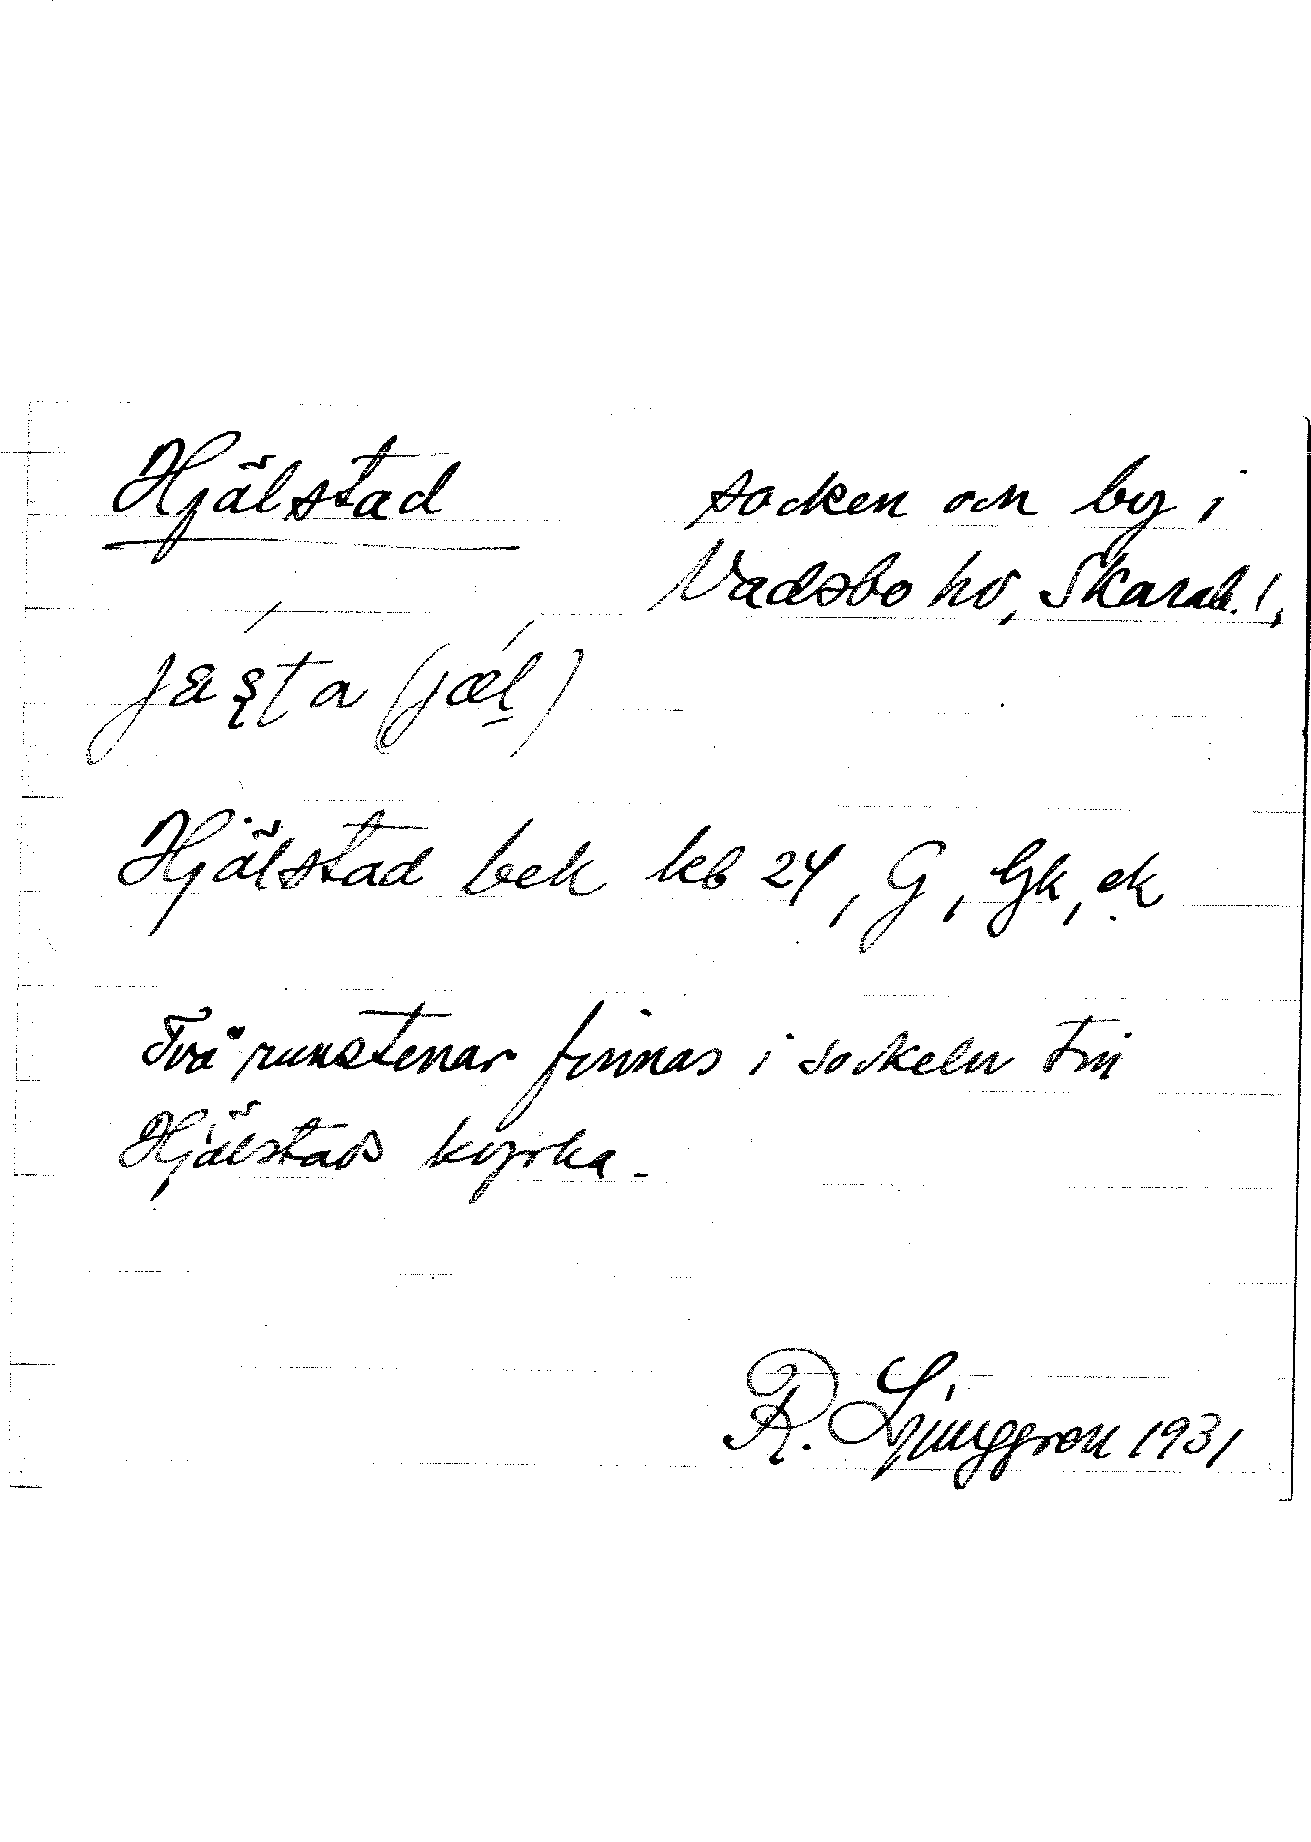 Hjälstad socken och by i
Vadsbo hd, Skarab. l,
Hjälstad bek kb 24, G, Gk, ek
Två runstenar finnas i sockeln till
Hjälstads kyrka.
R. Ljunggren 1931